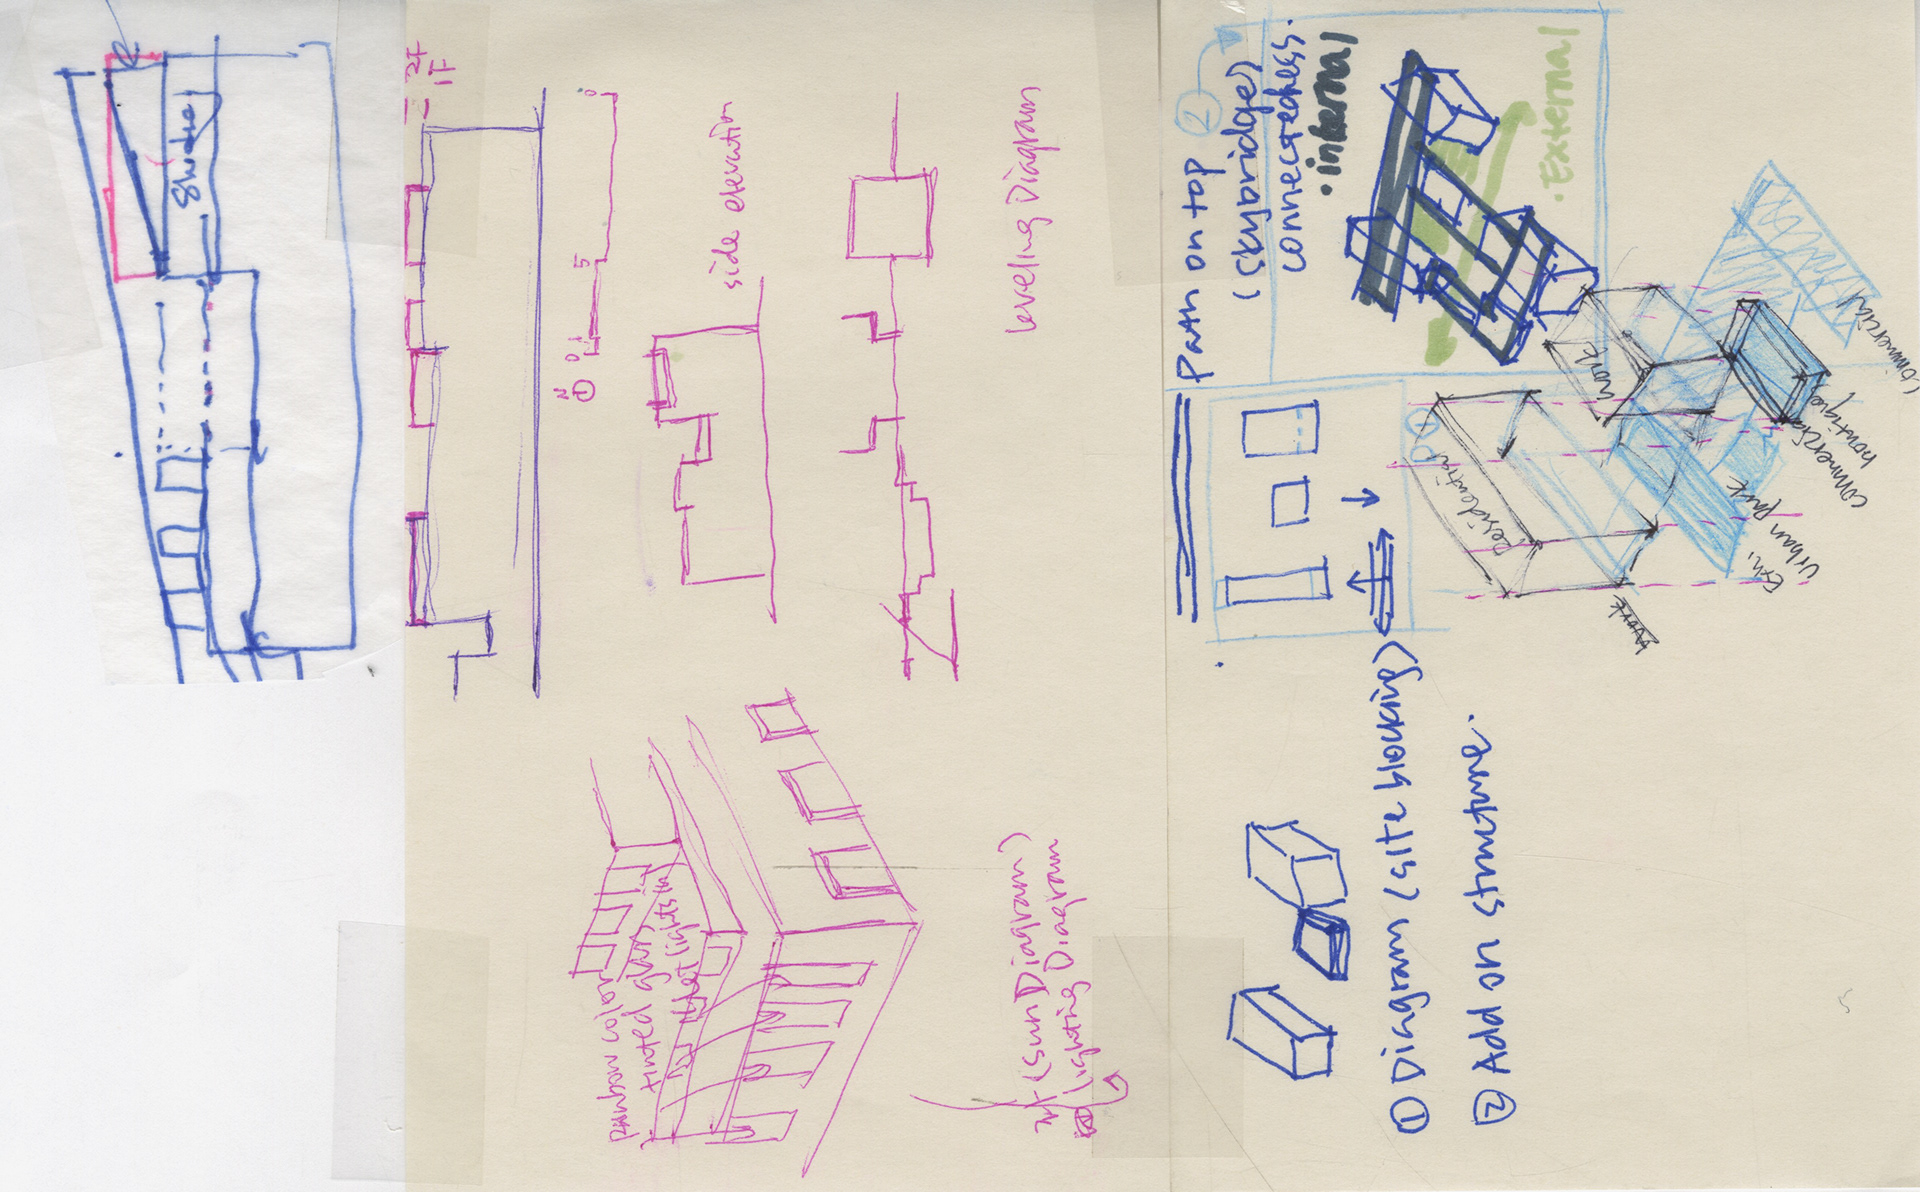 2F
1F
side elevation
leveling Diagram
Rainbow color
tinted glass
(sun Diagram)
lighting Diagram
Path on top
(skybridge)
connectedness.
• internal
• External
2
1
Residential
work
Commercial
Commercial
boutique
Urban park
Exhi.
work
① Diagram (site blocking)
② Add on structure.